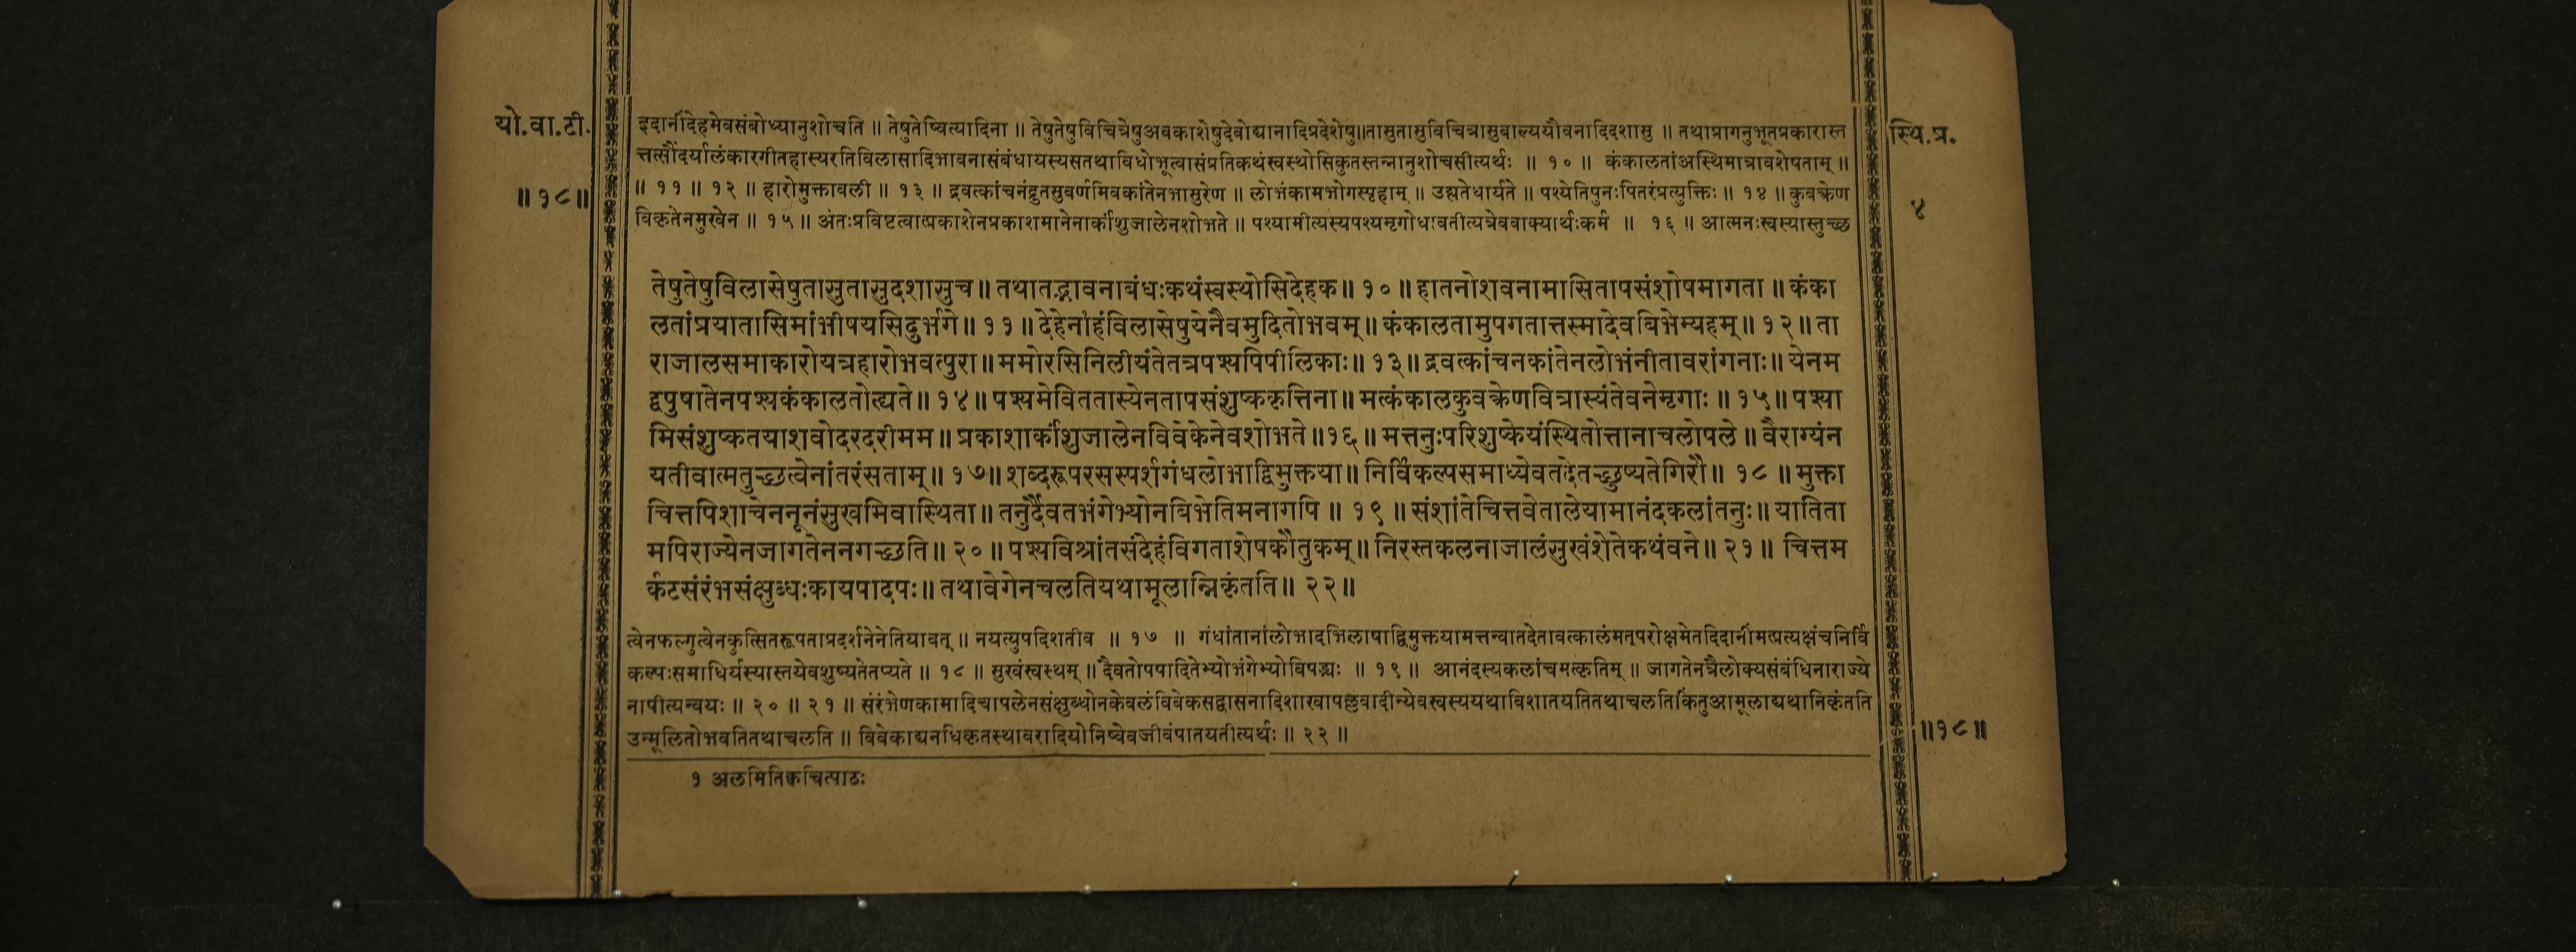 यो.वा.टी.
॥१८॥
इदानींदेहमेवसंबोध्यानुशोचति ॥ तेषुतेष्वित्यादिना ॥ तेषुतेषुविचित्रेषुअवकाशेषुदेवोद्यानादिप्रदेशेषु॥तासुतासुविचित्रासुबाल्ययौवनादिदशासु ॥ तथाप्रागनुभूतप्रकारास्त
त्तत्सौंदर्यालंकारगीतहास्यरतिविलासादिभावनासंबंधायस्यसतथाविधोभूत्वासंप्रतिकथंस्वस्थोसिकुतस्तन्नानुशोचसीत्यर्थः ॥ १० ॥ कंकालतांअस्थिमात्रावशेषताम् ॥
॥ ११ ॥ १२ ॥ हारोमुक्तावली ॥ १३ ॥ द्रवत्कांचनंद्रुतसुवर्णमिवकांतेनभासुरेण ॥ लोभंकामभोगस्पृहाम् ॥ उह्यतेधार्यते ॥ पश्येतिपुनःपितरंप्रत्युक्तिः ॥ १४ ॥ कुवक्रेण
विकृतेनमुखेन ॥ १५ ॥ अंतःप्रविष्टत्वात्प्रकाशेनप्रकाशमानेनार्कांशुजालेनशोभते ॥ पश्यामीत्यस्यपश्यमृगोधावतीत्यत्रेववाक्यार्थःकर्म ॥ १६ ॥ आत्मनःस्वस्यास्तुच्छ
तेषुतेषुविलासेषुतासुतासुदशासुच॥ तथातद्भावनाबंधःकथंस्वस्थोसिदेहक॥ १० ॥ हातनोशवनामासितापसंशोषमागता ॥ कंका
लतांप्रयातासिमांभीषयसिदुर्भगे॥ ११ ॥ देहेनाहंविलासेषुयेनैवमुदितोभवम्॥ कंकालतामुपगतात्तस्मादेवबिभेम्यहम्॥ १२ ॥ ता
राजालसमाकारोयत्रहारोभवत्पुरा॥ ममोरसिनिलीयंतेतत्रपश्यपिपीलिकाः॥ १३॥ द्रवत्कांचनकांतेनलोभंनीतावरांगनाः॥ येनम
द्वपुषातेनपश्यकंकालतोह्यते॥ १४॥ पश्यमेविततास्येनतापसंशुष्ककृत्तिना॥ मत्कंकालकुवक्रेणवित्रास्यंतेवनेमृगाः ॥ १५॥ पश्या
मिसंशुष्कतयाशवोदरदरीमम॥ प्रकाशार्कांशुजालेनविवेकेनेवशोभते॥१६॥ मत्तनुःपरिशुष्केयंस्थितोत्तानाचलोपले॥ वैराग्यंन
यतीवात्मतुच्छत्वेनांतरंसताम्॥ १७॥ शब्दरूपरसस्पर्शगंधलोभाद्विमुक्तया॥ निर्विकल्पसमाध्येवतदेतच्छुष्यतेगिरौ॥ १८ ॥ मुक्ता
चित्तपिशाचेननूनंसुखमिवास्थिता॥ तनुर्दैवतभंगेभ्योनबिभेतिमनागपि ॥ १९ ॥ संशांतेचित्तवेतालेयामानंदकलांतनुः॥ यातिता
मपिराज्येनजागतेननगच्छति॥ २० ॥ पश्यविश्रांतसंदेहंविगताशेषकौतुकम्॥ निरस्तकलनाजालंसुखंशेतेकथंवने॥ २१ ॥ चित्तम
र्कटसंरंभसंक्षुब्धःकायपादपः॥ तथावेगेनचलतियथामूलान्निकृंतति॥ २२॥
त्वेनफल्गुत्वेनकुत्सितरूपताप्रदर्शनेनेतियावत् ॥ नयत्युपदिशतीव ॥ १७ ॥ गंधांतानांलोभादभिलाषाद्विमुक्तयामत्तन्वातदेतावत्कालंमत्परोक्षमेतदिदानींमत्प्रत्यक्षंचनिर्वि
कल्पःसमाधिर्यस्यास्तयेवशुष्यतेतप्यते ॥ १८ ॥ सुखंस्वस्थम् ॥ दैवतोपपादितेभ्योभंगेभ्योविपद्भ्यः ॥ १९ ॥ आनंदस्यकलांचमत्कृतिम् ॥ जागतेनत्रैलोक्यसंबंधिनाराज्ये
नापीत्यन्वयः ॥ २० ॥ २१ ॥ संरंभेणकामादिचापलेनसंक्षुब्धोनकेवलंविवेकसद्वासनादिशाखापल्लवादीन्येवस्वस्ययथाविशातयतितथाचलतिकिंतुआमूलाद्यथानिकृंतति
उन्मूलितोभवतितथाचलति ॥ विवेकाद्यनधिकृतस्थावरादियोनिष्वेवजीवंपातयतीत्यर्थः ॥ २२ ॥
१ अलमितिक्वचित्पाठः
स्थि.प्र.
४
॥१८॥